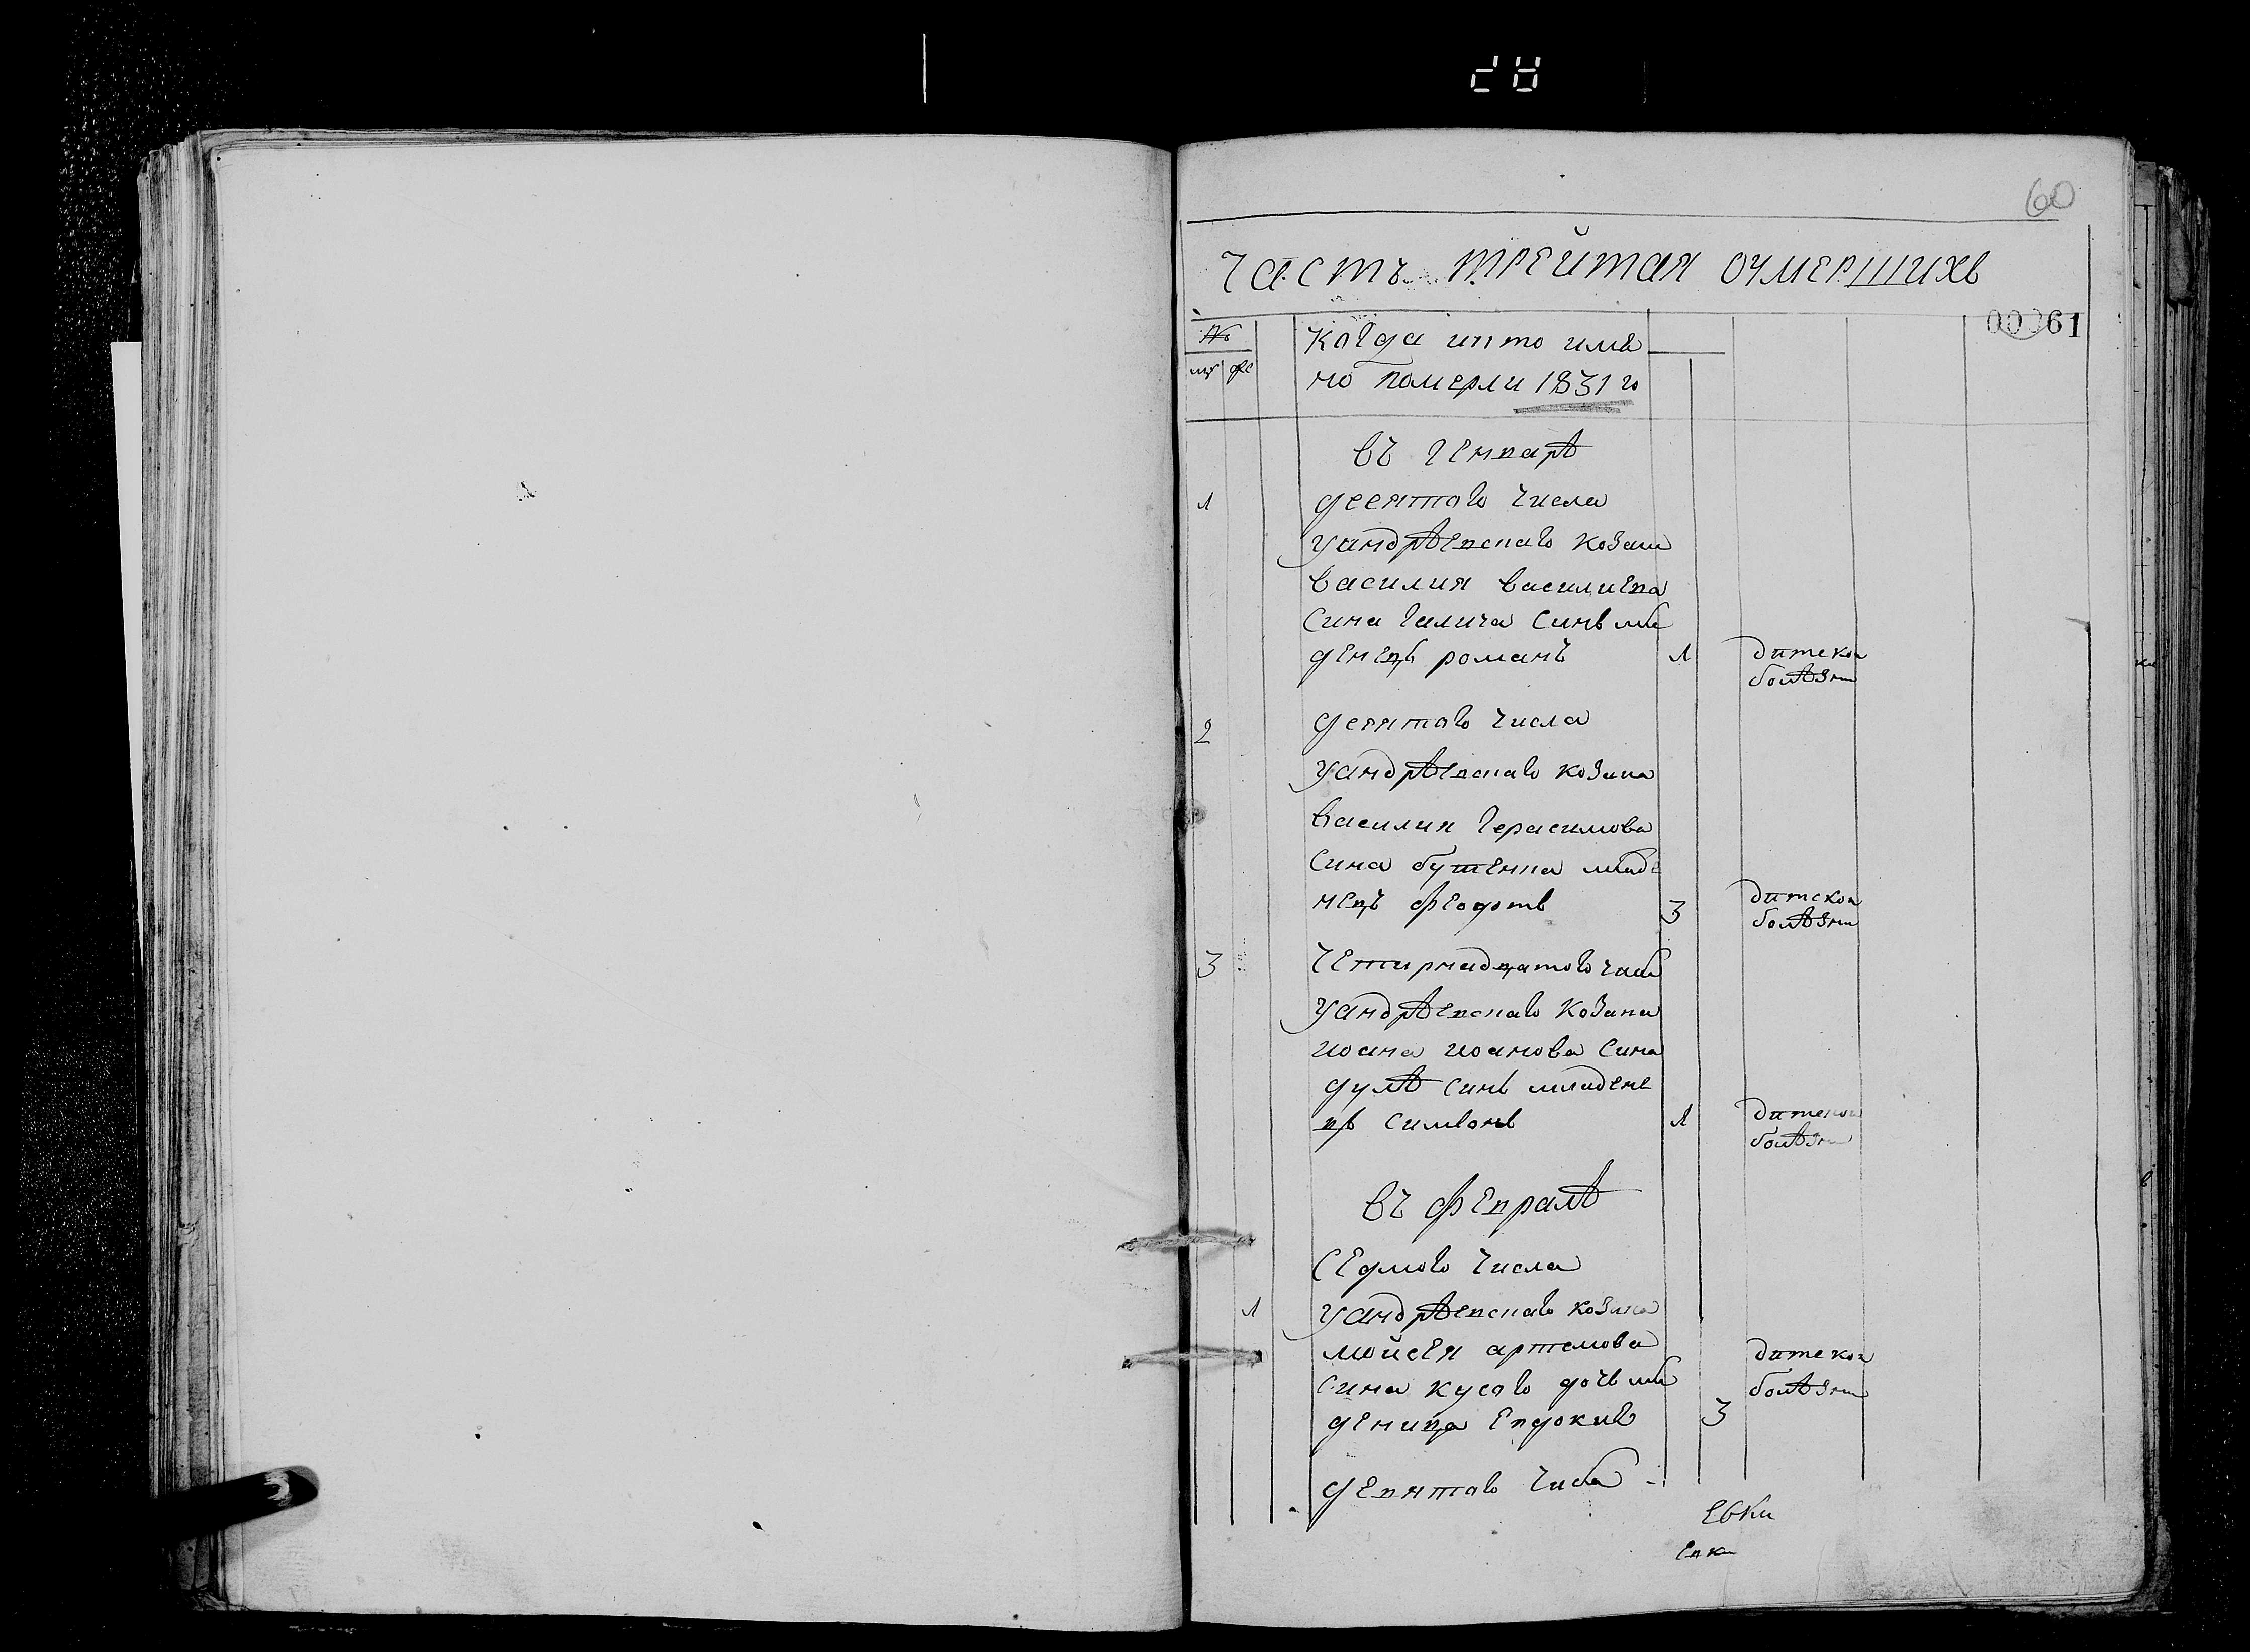 60
часть трейтая оумершихъ
00061
№ когда икто имѣ
му же но померли 1831 го
въ генварѣ
1 десятого числа
уандрѣевскаго козака
василия василиева
сина галича синъ мла
денецъ романъ 1 дитской
болѣзни
2 девятого числа
уандрѣевскаго козака
василия герасимова
сина бутенка младе
нецъ феодотъ 3 дитской
болѣзни
3 четирнадцатого числа
уандрѣевскаго козака
иоана иоанова сина
дулѣ синъ младене
цъ симеонъ 1 дитской
болѣзни
въ февралѣ
седмого числа
1 уандрѣевскаго козака
мойсея артемова дитской
сина кусого дочь мла болѣзни
деница евдокия 3
девятого числа
евки
евки